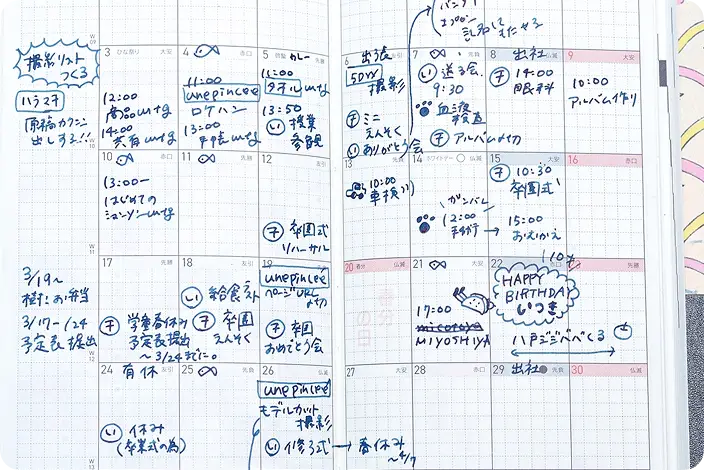 W
09
撮影リスト
つくる
ハラスヌ
原稿カクニン
出しする!!
W
10
3 ひな祭り 大安
12:00
商品mtg
14:00
共有mtg
4 赤口
11:00
unepincee
ロケハン
13:00
5 啓蟄 カレー 先勝
11:00
タオルmtg
13:50
い 授業
参観
6 出張 友引
撮影
チ ミニ
えんそく
い ありがとう会
7 先負
い 送る会
9:30
血液
検査
チ アルバム〆切
8 出社 仏滅
チ 14:00
眼科
9 大安
10:00
アルバム作り
10 赤口
13:00〜
はじめての
11 先勝
12 友引
チ 卒園式
リハーサル
13 先負
10:00
車検
14 ホワイトデー 仏滅
ガンバレ
12:00
15 大安
チ 10:30
卒園式
15:00
おむかえ
16 赤口
W
11
3/19〜
樹:お弁当
3/17〜1/24
予定表提出
W
12
17 先勝
チ 学童春休み
予定表提出
〜3/24までに。
18 友引
い 給食ラスト
チ 卒園
えんそく
19 先負
unepincee
ページURL
〆切
チ 卒園
おめでとう会
20 春分 仏滅
21 大安
17:00
MIYOSHIYA
22 赤口
HAPPY
BIRTHDAY
いつき
八戸ジジババくる
23 先勝
24 有休 友引
い 休み
(卒業式の為)
25 先負
26 仏滅
unepincee
モデルカット
撮影
い 修了式 → 春休み
〜4/7
27 大安
28 赤口
29 出社 先負
30 仏滅
W
13